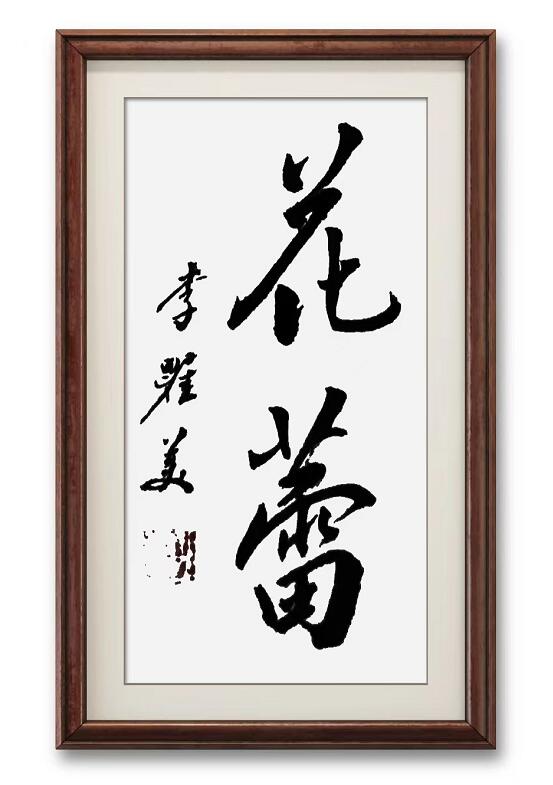 花蕾
李瞿美